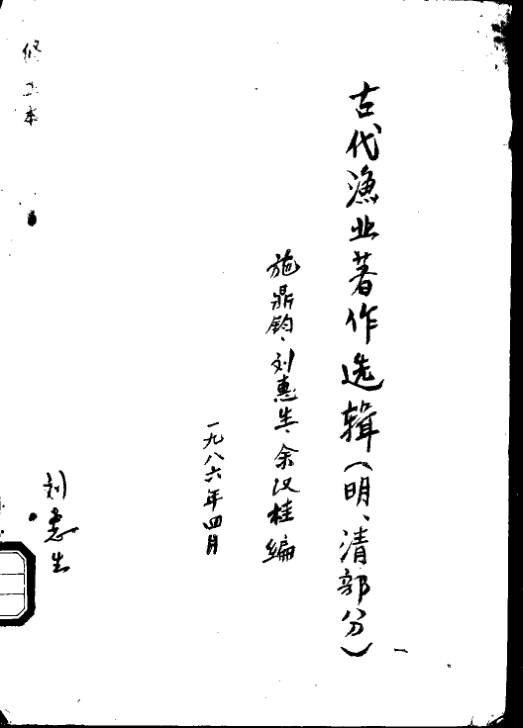 古代渔业著作选辑（明、清部分）一
施鼎钧、刘惠生、余汉桂编
一九八六年四月
刘惠生
修正本